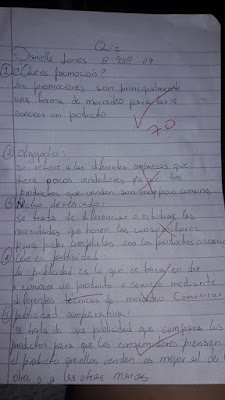 Quiz
Jones 8-928-119
① ¿Que es promocion?
Las promociones son principalmente
una forma de mercadeo para dar a
conocer un producto
7.0
② Oligopolio:
se refiere a las diferentes empresas que
tiene pocos vendedores los
productos que venden son muy comunes
③
se trata de diferenciar o estudiar las
necesidades que tienen los consumidores
para poder complacerlos con los productos o
④ Que es publicidad
la publicidad es la que se basa en dar
a conocer un producto o servicio mediante
diferentes tecnicas de mercadeo Comunicar
⑤ publicidad comparativa:
se trata de una publicidad que compara los
productos para que los consumidores piensen
el producto que ellos venden es mejor al de
otros o a las otras marcas